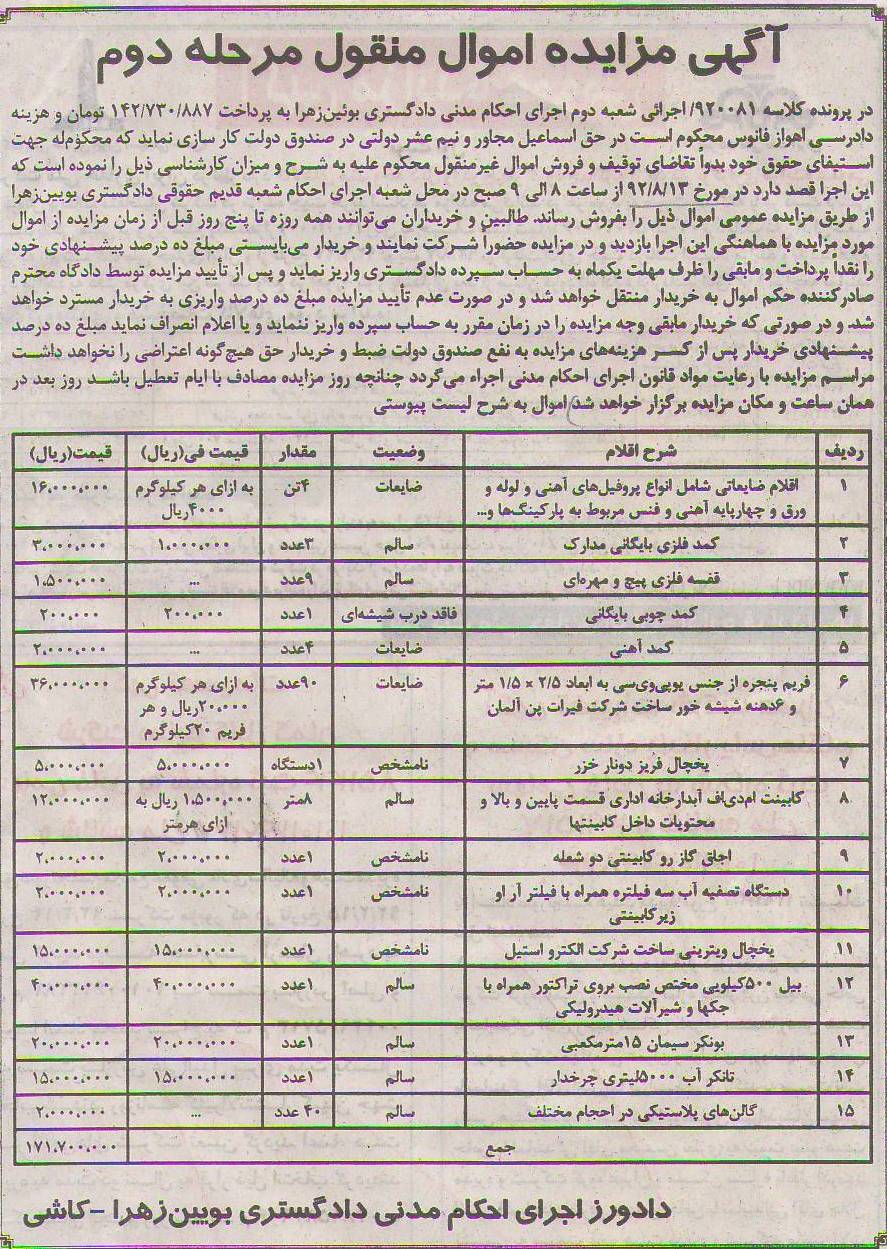 آگهی مزایده اموال منقول مرحله دوم
در پرونده کلاسه ۹۲۰۰۸۱/ اجرائی شعبه دوم اجرای احکام مدنی دادگستری بوئین‌زهرا به پرداخت ۱۴۲/۷۳۰/۸۸۷ تومان و هزینه
دادرسی اهواز فانوس محکوم است در حق اسماعیل مجاور و نیم عشر دولتی در صندوق دولت کار سازی نماید که محکوم‌له جهت
استیفای حقوق خود بدواً تقاضای توقیف و فروش اموال غیرمنقول محکوم علیه به شرح و میزان کارشناسی ذیل را نموده است که
این اجرا قصد دارد در مورخ ۹۲/۸/۱۳ از ساعت ۸ الی ۹ صبح در محل شعبه اجرای احکام شعبه قدیم حقوقی دادگستری بویین‌زهرا
از طریق مزایده عمومی اموال ذیل را بفروش رساند. طالبین و خریداران می‌توانند همه روزه تا پنج روز قبل از زمان مزایده از اموال
مورد مزایده با هماهنگی این اجرا بازدید و در مزایده حضوراً شرکت نمایند و خریدار می‌بایستی مبلغ ده درصد پیشنهادی خود
را نقداً پرداخت و مابقی را ظرف مهلت یکماه به حساب سپرده دادگستری واریز نماید و پس از تأیید مزایده توسط دادگاه محترم
صادرکننده حکم اموال به خریدار منتقل خواهد شد و در صورت عدم تأیید مزایده مبلغ ده درصد واریزی به خریدار مسترد خواهد
شد. و در صورتی که خریدار مابقی وجه مزایده را در زمان مقرر به حساب سپرده واریز ننماید و یا اعلام انصراف نماید مبلغ ده درصد
پیشنهادی خریدار پس از کسر هزینه‌های مزایده به نفع صندوق دولت ضبط و خریدار حق هیچ‌گونه اعتراضی را نخواهد داشت
مراسم مزایده با رعایت مواد قانون اجرای احکام مدنی اجراء می‌گردد چنانچه روز مزایده مصادف با ایام تعطیل باشد روز بعد در
همان ساعت و مکان مزایده برگزار خواهد شد) اموال به شرح لیست پیوستی
ردیف شرح اقلام وضعیت مقدار قیمت فی(ریال) قیمت(ریال)
۱ اقلام ضایعاتی شامل انواع پروفیل‌های آهنی و لوله و ضایعات ۴تن به ازای هر کیلوگرم ۱۶،۰۰۰،۰۰۰
ورق و چهارپایه آهنی و فنس مربوط به پارکینگ‌ها و... ۴۰۰۰ریال
۲ کمد فلزی بایگانی مدارک سالم ۳عدد ۱،۰۰۰،۰۰۰ ۳،۰۰۰،۰۰۰
۳ قفسه فلزی پیچ و مهره‌ای سالم ۹عدد ... ۱،۵۰۰،۰۰۰
۴ کمد چوبی بایگانی فاقد درب شیشه‌ای ۱عدد ۲۰۰،۰۰۰ ۲۰۰،۰۰۰
۵ کمد آهنی ضایعات ۴عدد ... ۲،۰۰۰،۰۰۰
۶ فریم پنجره از جنس یوپی‌وی‌سی به ابعاد ۲/۵ × ۱/۵ متر ضایعات ۹۰عدد به ازای هر کیلوگرم ۳۶،۰۰۰،۰۰۰
و ۶دهنه شیشه خور ساخت شرکت فیرات پن آلمان ۲۰،۰۰۰ریال و هر
فریم ۲۰کیلوگرم
۷ یخچال فریز دونار خزر نامشخص ۱دستگاه ۵،۰۰۰،۰۰۰ ۵،۰۰۰،۰۰۰
۸ کابینت ام‌دی‌اف آبدارخانه اداری قسمت پایین و بالا و سالم ۸متر ۱،۵۰۰،۰۰۰ ریال به ۱۲،۰۰۰،۰۰۰
محتویات داخل کابینتها ازای هرمتر
۹ اجاق گاز رو کابینتی دو شعله نامشخص ۱عدد ۲،۰۰۰،۰۰۰ ۲،۰۰۰،۰۰۰
۱۰ دستگاه تصفیه آب سه فیلتره همراه با فیلتر آر او نامشخص ۱عدد ۲،۰۰۰،۰۰۰ ۲،۰۰۰،۰۰۰
زیرکابینتی
۱۱ یخچال ویترینی ساخت شرکت الکترو استیل نامشخص ۱عدد ۱۵،۰۰۰،۰۰۰ ۱۵،۰۰۰،۰۰۰
۱۲ بیل ۵۰۰کیلویی مختص نصب بروی تراکتور همراه با سالم ۱عدد ۴۰،۰۰۰،۰۰۰ ۴۰،۰۰۰،۰۰۰
جکها و شیرآلات هیدرولیکی
۱۳ بونکر سیمان ۱۵مترمکعبی سالم ۱عدد ۲۰،۰۰۰،۰۰۰ ۲۰،۰۰۰،۰۰۰
۱۴ تانکر آب ۵۰۰۰لیتری چرخدار سالم ۱عدد ۱۵،۰۰۰،۰۰۰ ۱۵،۰۰۰،۰۰۰
۱۵ گالن‌های پلاستیکی در احجام مختلف سالم ۴۰ عدد ... ۲،۰۰۰،۰۰۰
جمع ۱۷۱،۷۰۰،۰۰۰
دادورز اجرای احکام مدنی دادگستری بویین‌زهرا -کاشی